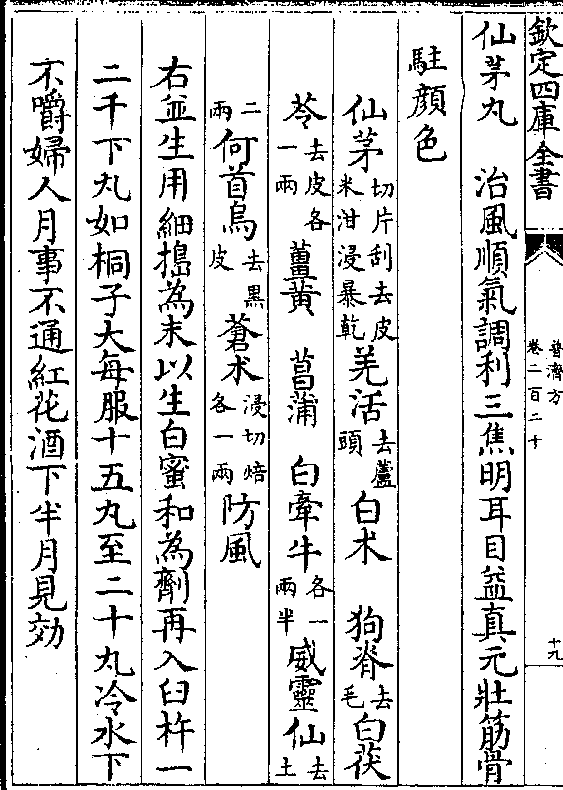 欽定四庫全書
普濟方
卷二百二十
十九
仙茅丸　治風順氣調利三焦明耳目益真元壯筋骨
駐顔色
仙茅切片刮去皮米泔浸暴乾羌活去蘆頭白术　狗脊去毛白茯
苓去皮各一兩薑黄　菖蒲　白牽牛各一兩半威靈仙去土
二兩何首烏去黑皮蒼术浸切焙各一兩防風
右並生用細搗為末以生白蜜和為劑再入臼杵一
二千下丸如桐子大每服十五丸至二十丸冷水下
不嚼婦人月事不通紅花酒下半月見効